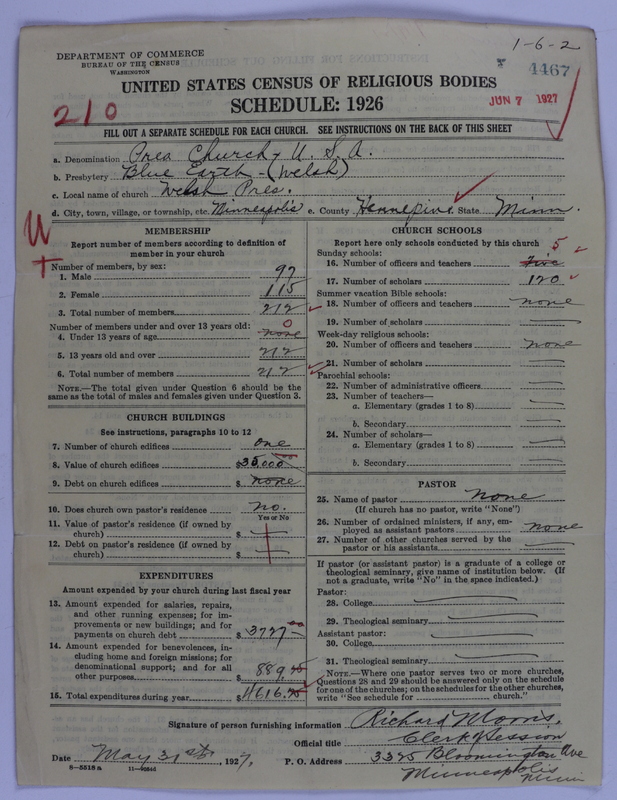 1-6-2
DEPARTMENT OF COMMERCE
BUREAU OF THE CENSUS
WASHINGTON
4467
UNITED STATES CENSUS OF RELIGIOUS BODIES
JUN 7 1927
210
SCHEDULE: 1926
FILL OUT A SEPARATE SCHEDULE FOR EACH CHURCH. SEE INSTRUCTIONS ON THE BACK OF THIS SHEET
a. Denomination Pres Church, U.S.A.
b. Presbytery Blue Earth - (Welsh)
c. Local name of church Welsh Pres.
d. City, town, village, or township, etc. Minneapolis e. County Hennepin State Minn.
MEMBERSHIP
Report number of members according to definition of
member in your church
Number of members, by sex:
1. Male 97
2. Female 115
3. Total number of members 212
Number of members under and over 13 years old: 0
4. Under 13 years of age none
5. 13 years old and over 212
6. Total number of members 212
NOTE.—The total given under Question 6 should be the
same as the total of males and females given under Question 3.
CHURCH BUILDINGS
See instructions, paragraphs 10 to 12
7. Number of church edifices one
8. Value of church edifices $35,000
9. Debt on church edifices $ none
10. Does church own pastor's residence no.
Yes or No
11. Value of pastor's residence (if owned by
church) $ —
12. Debt on pastor's residence (if owned by
church) $ —
EXPENDITURES
Amount expended by your church during last fiscal year
13. Amount expended for salaries, repairs,
and other running expenses; for im-
provements or new buildings; and for
payments on church debt $ 3727.00
14. Amount expended for benevolences, in-
cluding home and foreign missions; for
denominational support; and for all
other purposes $ 889.
15. Total expenditures during year $ 4616.
CHURCH SCHOOLS
Report here only schools conducted by this church
Sunday schools: 5
16. Number of officers and teachers five
17. Number of scholars 120
Summer vacation Bible schools:
18. Number of officers and teachers none
19. Number of scholars —
Week-day religious schools:
20. Number of officers and teachers none
21. Number of scholars —
Parochial schools:
22. Number of administrative officers —
23. Number of teachers—
a. Elementary (grades 1 to 8) —
b. Secondary —
24. Number of scholars—
a. Elementary (grades 1 to 8) —
b. Secondary —
PASTOR
25. Name of pastor none
(If church has no pastor, write "None")
26. Number of ordained ministers, if any, em-
ployed as assistant pastors none
27. Number of other churches served by the
pastor or his assistants —
If pastor (or assistant pastor) is a graduate of a college or
theological seminary, give name of institution below. (If
not a graduate, write "No" in the space indicated.)
Pastor:
28. College —
29. Theological seminary —
Assistant pastor:
30. College —
31. Theological seminary —
NOTE.—Where one pastor serves two or more churches,
Questions 28 and 29 should be answered only on the schedule
for one of the churches; on the schedules for the other churches,
write "See schedule for ______ church."
Signature of person furnishing information Richard Morris.
Official title Clerk of Session
Date May 31st, 1927. P. O. Address 3325 Bloomington Ave
8-5518 a
Minneapolis
Minn